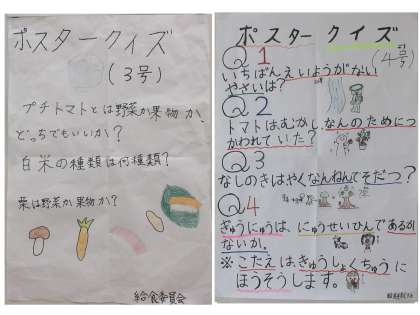 ポスタークイズ
(3号)
プチトマトとは野菜か果物か、
どっちでもいいか?
白米の種類は何種類?
栗は野菜か果物か?
給食委員会
ポスタークイズ
(4号)
Q1
いちばんえいようがない
やさいは?
Q2
トマトはむかし、なんのためにつ
かわれていた?
Q3
なしのきはやくなんねんでそだつ?
Q4
ぎゅうにゅうは、にゅうせいひんであるか
ないか。
※こたえはきゅうしょくちゅうに
ほうそうします。